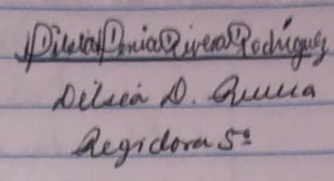 Dilcia Denia Rivera Rodríguez
Dilcia D. Rivera
Regidora 5ª